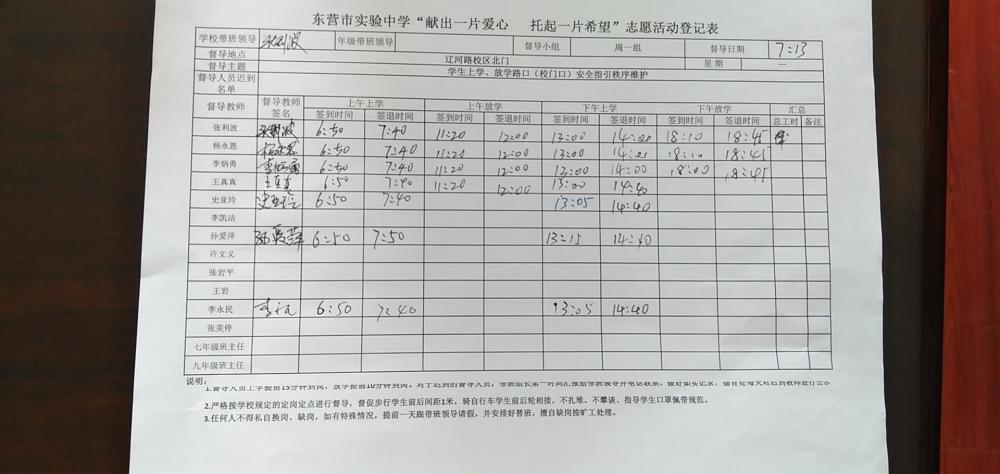 东营市实验中学“献出一片爱心 托起一片希望”志愿活动登记表
学校带班领导 张利波 年级带班领导 督导小组 周一组 督导日期 7:13
督导地点 辽河路校区北门 星期 一
督导主题 学生上学、放学路口（校门口）安全指引秩序维护
督导人员迟到名单
督导教师 督导教师签名 上午上学 上午放学 下午上学 下午放学 汇总
签到时间 签退时间 签到时间 签退时间 签到时间 签退时间 签到时间 签退时间 总工时 备注
张利波 张利波 6:50 7:40 11:20 12:00 13:00 14:00 18:10 18:45
杨永恩 杨永恩 6:50 7:40 11:20 12:00 13:00 14:00 18:10 18:45
李炳勇 李炳勇 6:50 7:40 11:20 12:00 13:00 14:00 18:00 18:45
王真真 王真真 6:50 7:40 11:20 12:00 13:00 14:40
史亚玲 史亚玲 6:50 7:40 13:05 14:40
李凯洁
孙爱萍 孙爱萍 6:50 7:50 13:15 14:40
许文义
张岩平
王岩
李永民 6:50 7:40 13:05 14:40
张美停
七年级班主任
九年级班主任
说明：
1.督导人员上学提前15分钟到岗，放学提前10分钟到岗。对于迟到的督导人员，带班组长第一时间汇报给带班领导并电话联系，做好如实记录，德育处每天对迟到教师进行公示
2.严格按学校规定的定岗定点进行督导，督促步行学生前后间距1米，骑自行车学生前后轮相接，不扎堆、不攀谈、指导学生口罩佩带规范。
3.任何人不得私自换岗、缺岗，如有特殊情况，提前一天跟带班领导请假，并安排好替班，擅自缺岗按旷工处理。